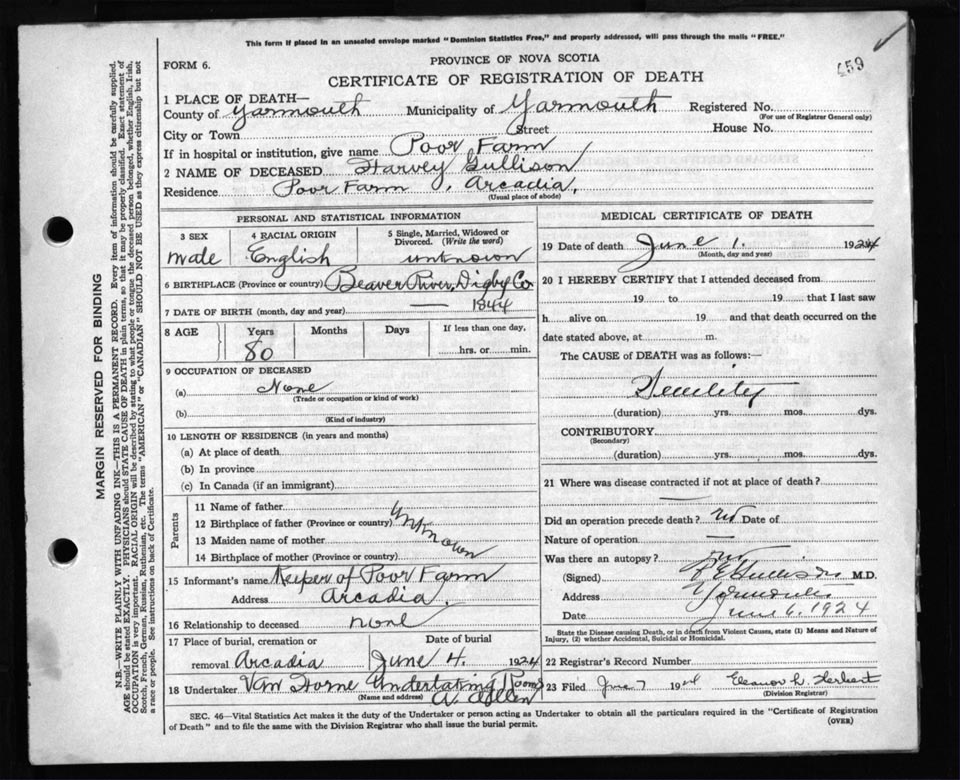 This form if placed in an unsealed envelope marked "Dominion Statistics Free," and properly addressed, will pass through the mails "FREE."
459
FORM 6.
PROVINCE OF NOVA SCOTIA
CERTIFICATE OF REGISTRATION OF DEATH
1 PLACE OF DEATH—
County of Yarmouth Municipality of Yarmouth Registered No.
(For use of Registrar General only)
City or Town Street House No.
If in hospital or institution, give name Poor Farm
2 NAME OF DECEASED Harvey Gullison
Residence Poor Farm, Arcadia,
(Usual place of abode)
PERSONAL AND STATISTICAL INFORMATION
3 SEX 4 RACIAL ORIGIN 5 Single, Married, Widowed or Divorced. (Write the word)
male English unknown
6 BIRTHPLACE (Province or country) Beaver River, Digby Co
7 DATE OF BIRTH (month, day and year) — 1844
8 AGE Years Months Days If less than one day,
80 hrs. or min.
9 OCCUPATION OF DECEASED
(a) None
(Trade or occupation or kind of work)
(b)
(Kind of industry)
10 LENGTH OF RESIDENCE (in years and months)
(a) At place of death
(b) In province
(c) In Canada (if an immigrant)
Parents
11 Name of father
12 Birthplace of father (Province or country) Unknown
13 Maiden name of mother
14 Birthplace of mother (Province or country)
15 Informant's name Keeper of Poor Farm
Address Arcadia.
16 Relationship to deceased none
17 Place of burial, cremation or Date of burial
removal Arcadia June 4. 1924
18 Undertaker Van Horne Undertaking Rooms
(Name and address) A. Allen
MEDICAL CERTIFICATE OF DEATH
19 Date of death June 1. 1924
(Month, day and year)
20 I HEREBY CERTIFY that I attended deceased from
19 to 19 that I last saw
h alive on 19 and that death occurred on the
date stated above, at m.
The CAUSE of DEATH was as follows:—
Senility
(duration) yrs. mos. dys.
CONTRIBUTORY
(Secondary)
(duration) yrs. mos. dys.
21 Where was disease contracted if not at place of death?
—
Did an operation precede death? no Date of
Nature of operation —
Was there an autopsy? no
(Signed) M.D.
Address Yarmouth
Date June 6. 1924
State the Disease causing Death, or in death from Violent Causes, state (1) Means and Nature of
Injury, (2) whether Accidental, Suicidal or Homicidal.
22 Registrar's Record Number
23 Filed June 7 1924 Eleanor L. Herbert
(Division Registrar)
SEC. 46—Vital Statistics Act makes it the duty of the Undertaker or person acting as Undertaker to obtain all the particulars required in the "Certificate of Registration
of Death" and to file the same with the Division Registrar who shall issue the burial permit. (OVER)
MARGIN RESERVED FOR BINDING
N.B.—WRITE PLAINLY WITH UNFADING INK—THIS IS A PERMANENT RECORD. Every item of information should be carefully supplied.
AGE should be stated EXACTLY. PHYSICIANS should STATE CAUSE OF DEATH in plain terms, so that it may be properly classified. Exact statement of
OCCUPATION is very important. RACIAL ORIGIN will be described by stating to what people or tongue the deceased person belonged, whether English, Irish,
Scotch, French, German, Russian, Ruthenian, etc. The terms "AMERICAN" or "CANADIAN" SHOULD NOT BE USED as they express citizenship but not
a race or people. See instructions on back of Certificate.